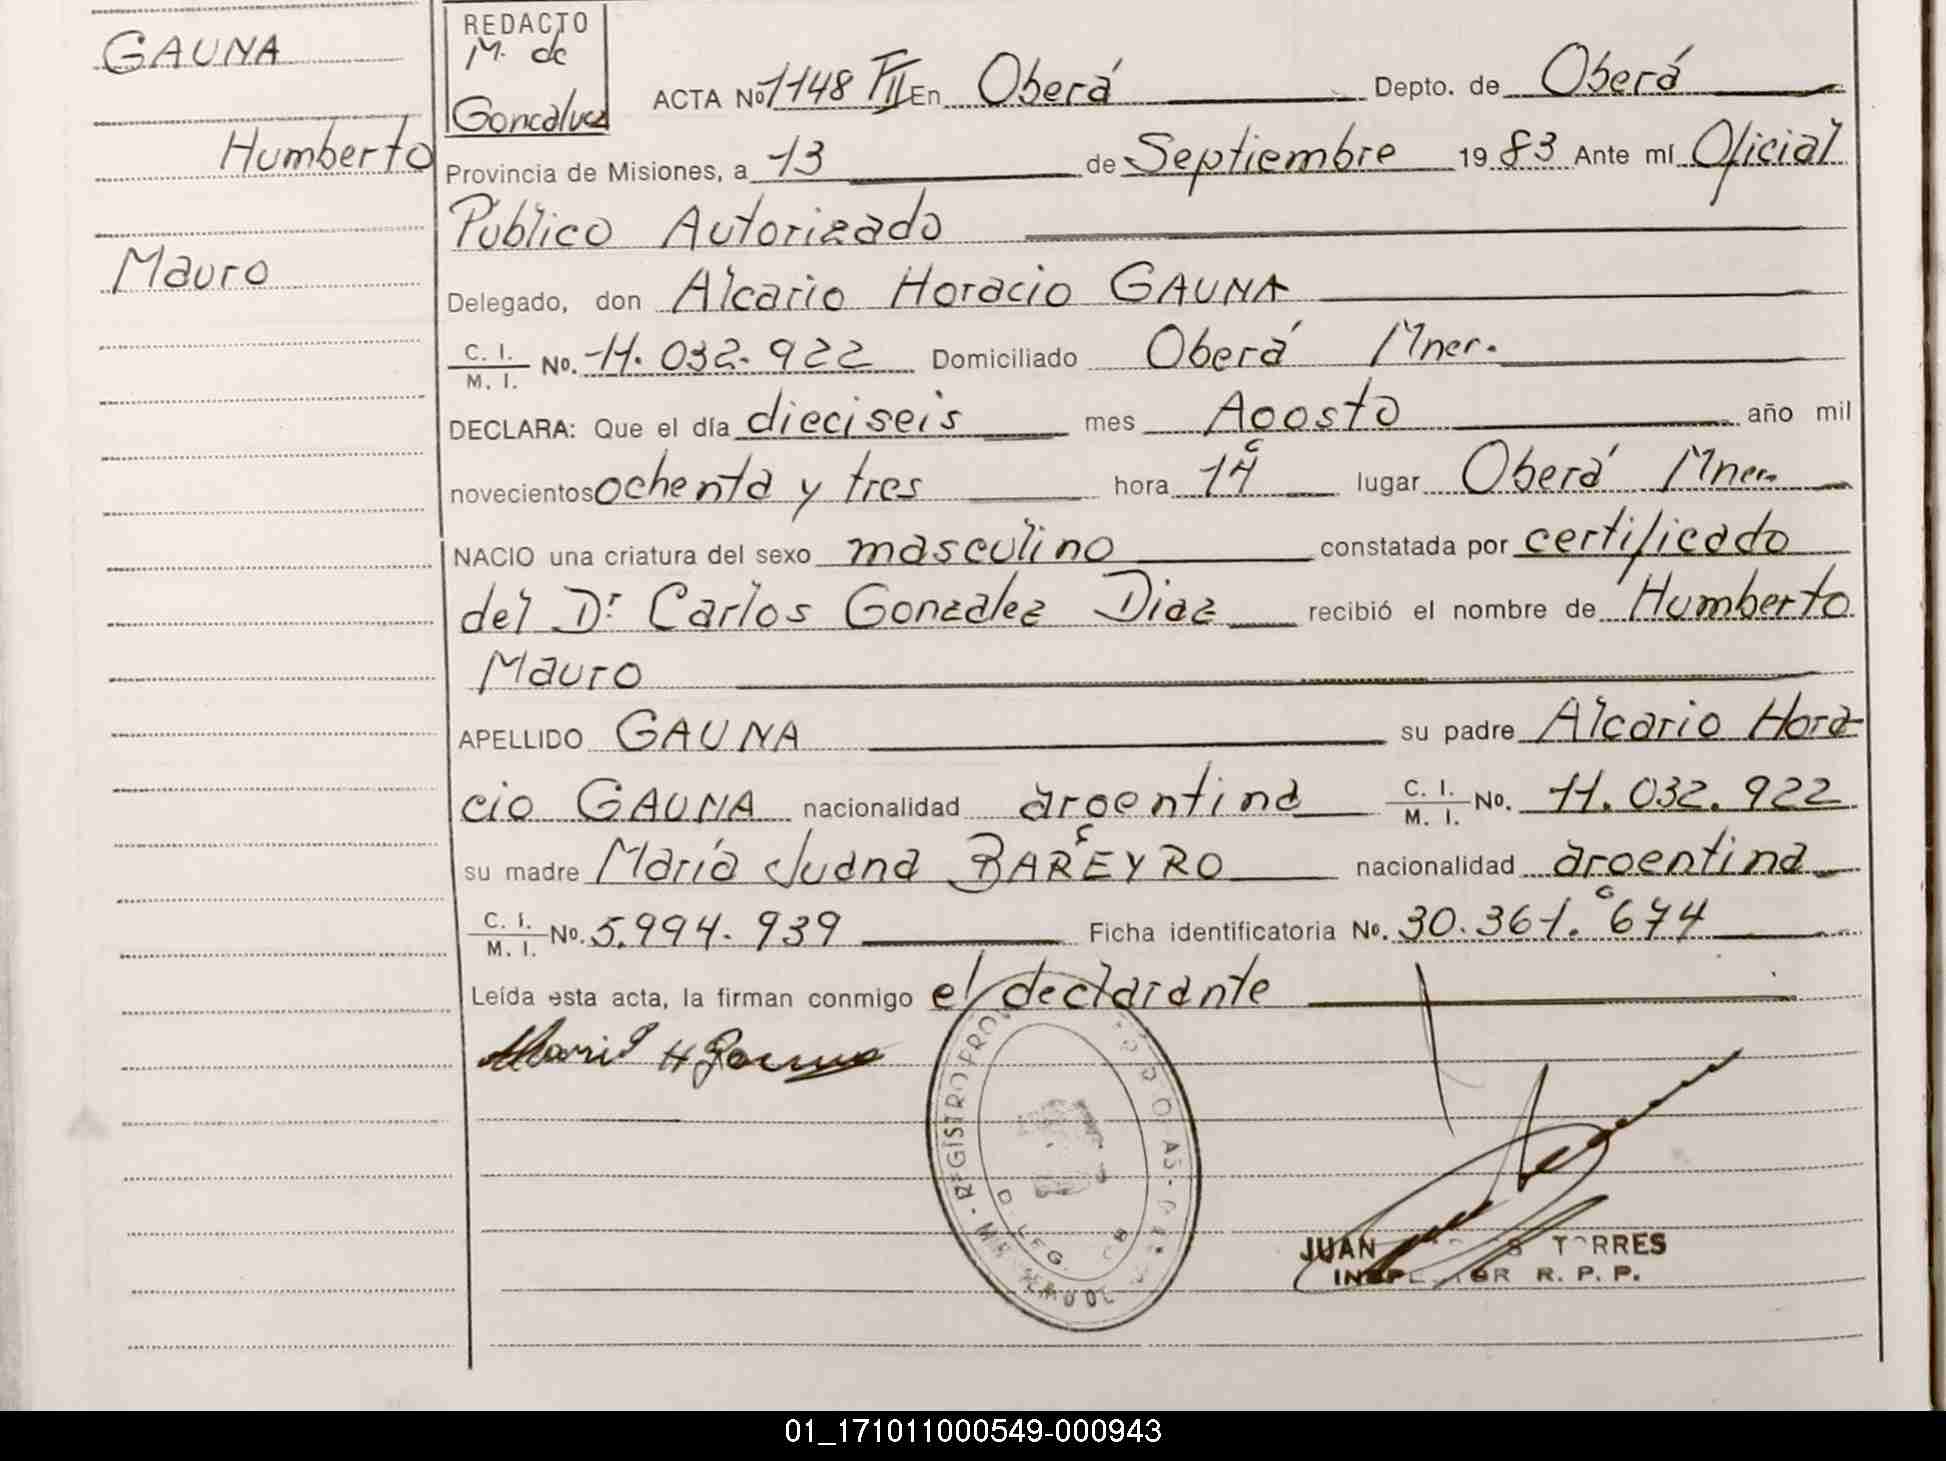 GAUNA
Humberto
Mauro
REDACTO
M. de
Goncalvez
ACTA Nº 1148 TII En Oberá Depto. de Oberá
Provincia de Misiones, a 13 de Septiembre 1983 Ante mí Oficial
Público Autorizado
Delegado, don Alcario Horacio GAUNA
C. I.
M. I. Nº. 11.032.922 Domiciliado Oberá Mnes.
DECLARA: Que el día dieciseis mes Agosto año mil
novecientos ochenta y tres hora 14 lugar Oberá Mnes.
NACIO una criatura del sexo masculino constatada por certificado
del Dr Carlos Gonzalez Diaz recibió el nombre de Humberto
Mauro
APELLIDO GAUNA su padre Alcario Hora-
cio GAUNA nacionalidad argentina C. I.
M. I. Nº. 11.032.922
su madre María Juana BAREYRO nacionalidad argentina
C. I.
M. I. Nº. 5.994.939 Ficha identificatoria Nº. 30.361.674
Leída esta acta, la firman conmigo el declarante
JUAN TORRES
INSPECTOR R. P. P.
01_171011000549-000943